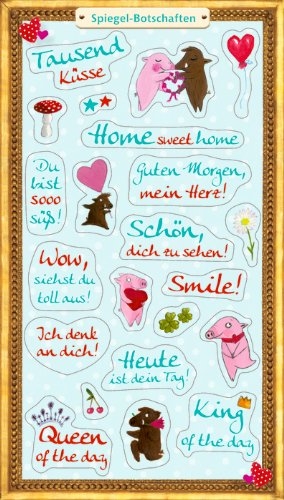 Spiegel-Botschaften
Tausend
Küsse
Home sweet home
Du
bist
sooo
süß!
Guten Morgen,
mein Herz!
Schön,
dich zu sehen!
Wow,
siehst du
toll aus!
Smile!
Ich denk
an dich!
Heute
ist dein Tag!
King
of the day
Queen
of the day